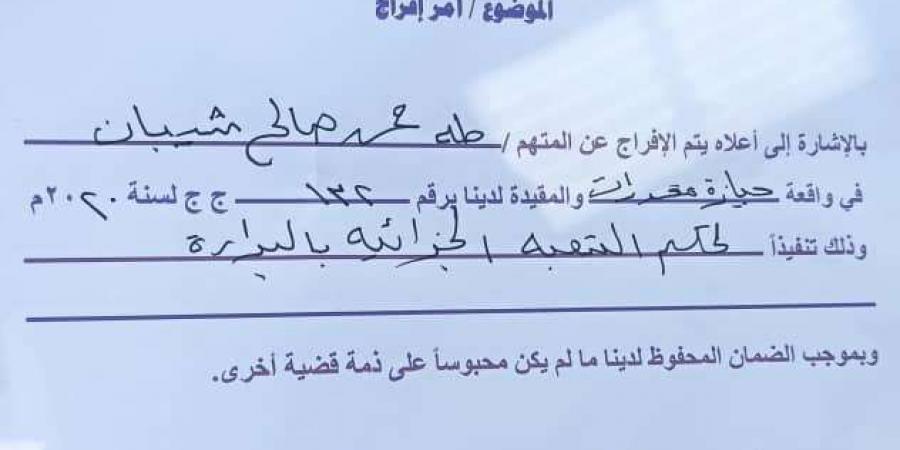 الموضوع / أمر إفراج
بالإشارة إلى أعلاه يتم الإفراج عن المتهم / طه محمد صالح شيبان
في واقعة حيازة مخدرات والمقيدة لدينا برقم ١٣٢ ج ج لسنة ٢٠٢٠م
وذلك تنفيذاً لحكم الشعبة الجزائية بالبراءة
وبموجب الضمان المحفوظ لدينا ما لم يكن محبوساً على ذمة قضية أخرى.